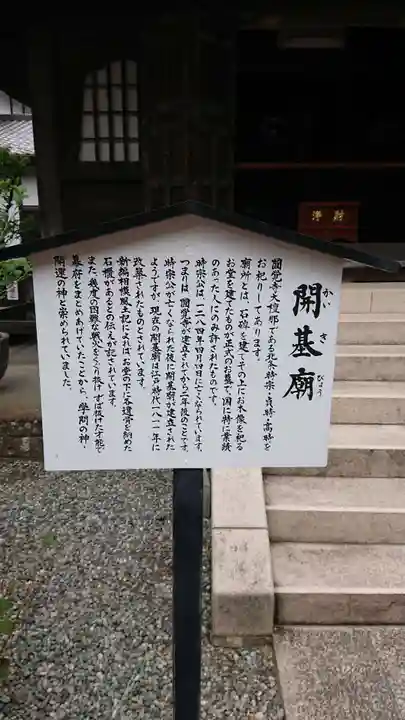 浄財
開基廟
かいきびょう
圓覚寺大檀那である北条時宗・貞時・高時を
お祀りしてあります。
廟所とは、石碑を建てその上にお木像を祀る
お堂を建てたものが正式のお墓で、国に特に業績
のあった人にのみ許されたものです。
時宗公は一二八四年四月四日に亡くなられています。
つまりは、圓覚寺が建立されてから二年後のことです。
時宗公が亡くなられた後に開基廟が建立された
ようですが、現在の開基廟は江戸時代一八一一年に
改築されたものとされています。
新編相模風土記によればお堂の下に各遺骨を納めた
石櫃があるとの伝えが記されています。
また、幾度の困難な禦いをくぐり抜けずば抜けた才能で
幕府をまとめあげていたことから、学問の神・
開運の神と崇められていました。